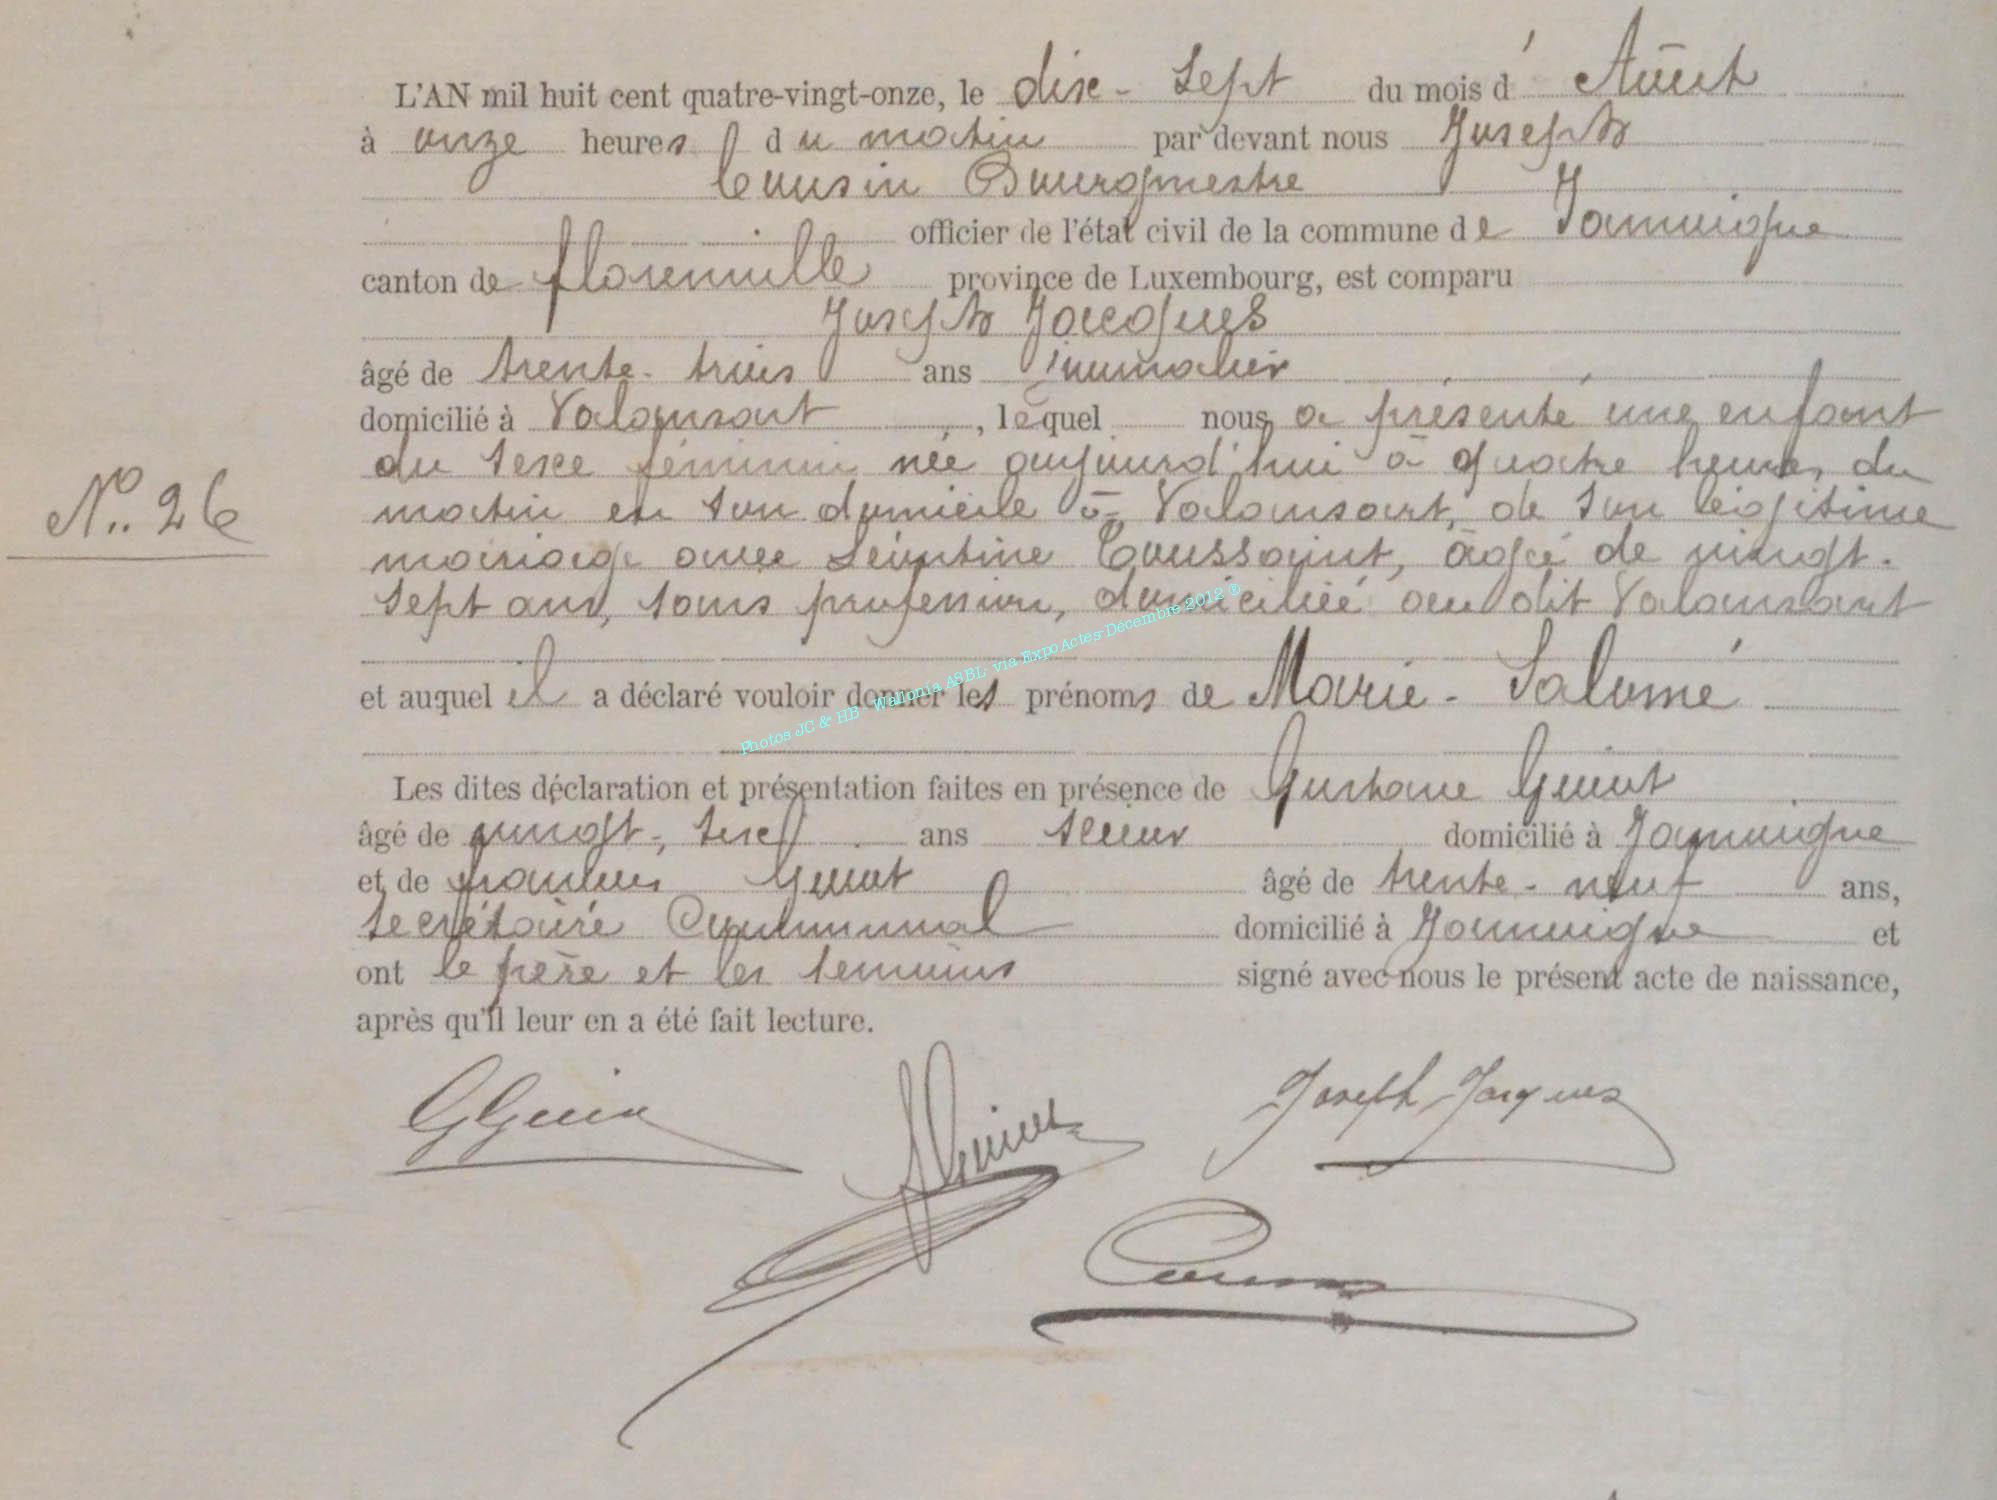 L'AN mil huit cent quatre-vingt-onze, le dix-sept du mois d'Août
à onze heures du matin par devant nous Joseph
Cousin Bourgmestre
officier de l'état civil de la commune de Jamoigne
canton de florenville province de Luxembourg, est comparu
Joseph Jacques
âgé de trente-trois ans journalier
domicilié à Valansart, lequel nous a présenté une enfant
du sexe féminin née aujourd'hui à quatre heures du
matin en son domicile à Valansart, de son légitime
mariage avec Léontine Toussaint, âgée de vingt-
sept ans, sans profession, domiciliée au dit Valansart
No. 26
et auquel il a déclaré vouloir donner les prénoms de Marie-Salomé
Les dites déclaration et présentation faites en présence de Gustave Guiot
âgé de vingt-six ans scieur domicilié à Jamoigne
et de Guiot âgé de trente-neuf ans,
secrétaire Communal domicilié à Jamoigne et
ont le père et les témoins signé avec nous le présent acte de naissance,
après qu'il leur en a été fait lecture.
Joseph Jacques
Photos JC & HB - Wallonia ASBL- via ExpoActes-Décembre 2012 ®